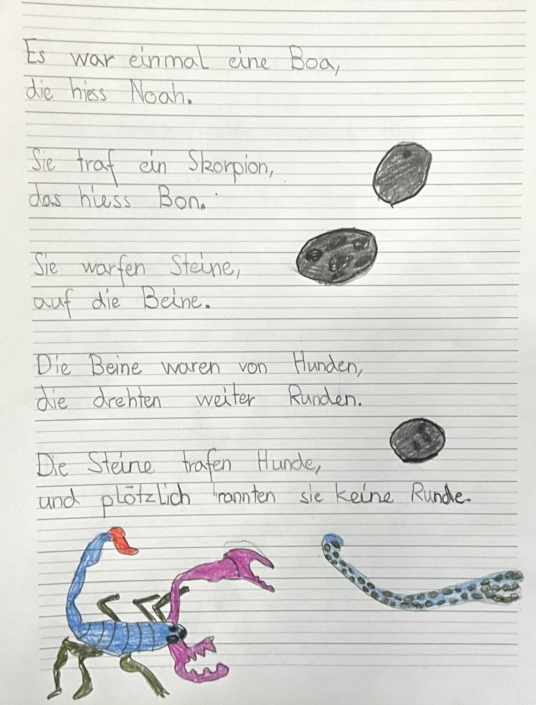 Es war einmal eine Boa,
die hiess Noah.
Sie traf ein Skorpion,
das hiess Bon.
Sie warfen Steine,
auf die Beine.
Die Beine waren von Hunden,
die drehten weiter Runden.
Die Steine trafen Hunde,
und plötzlich rannten sie keine Runde.